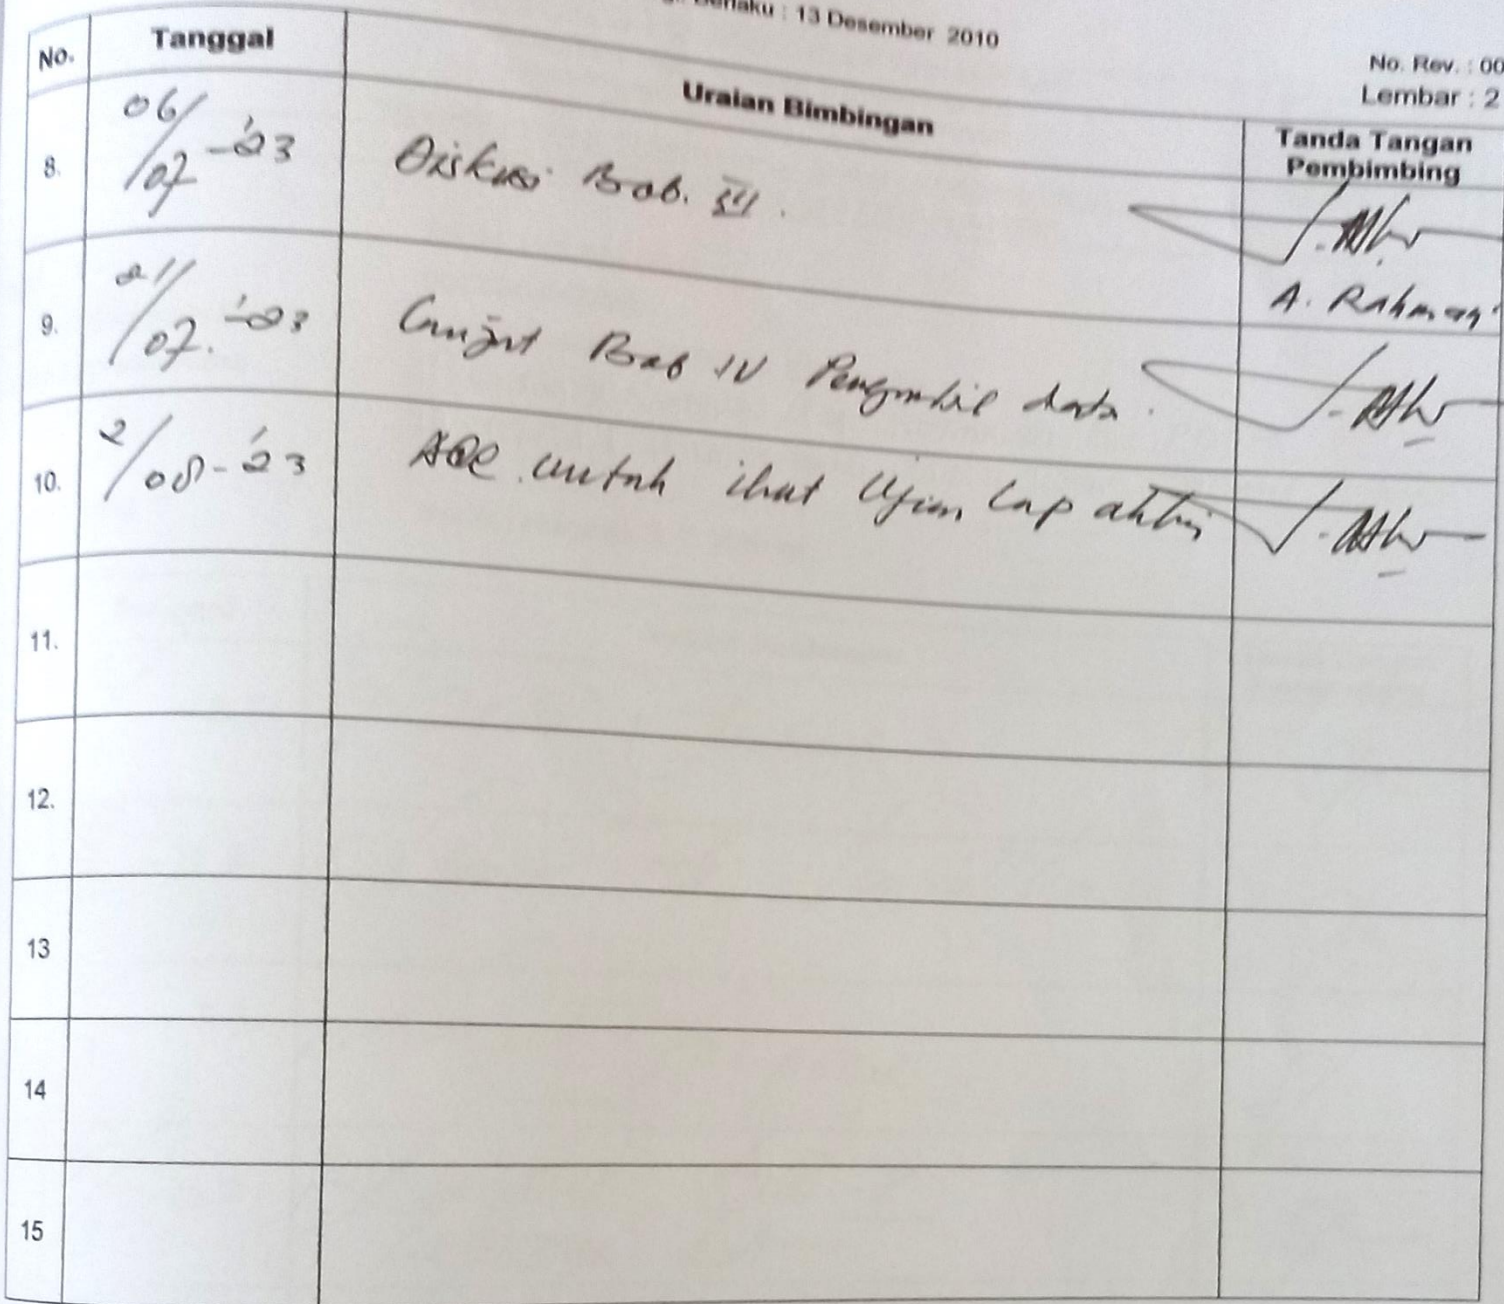 Berlaku : 13 Desember 2010
No. Rev. : 00
Lembar : 2
No. Tanggal Uraian Bimbingan Tanda Tangan Pembimbing
8. 06/07-'23 Diskusi Bab. III.
A. Rahman
9. 21/07.-'23 Lanjut Bab IV Pengambil data.
10. 2/08-'23 ACC untuk ikut Ujian Lap akhir
11.
12.
13
14
15